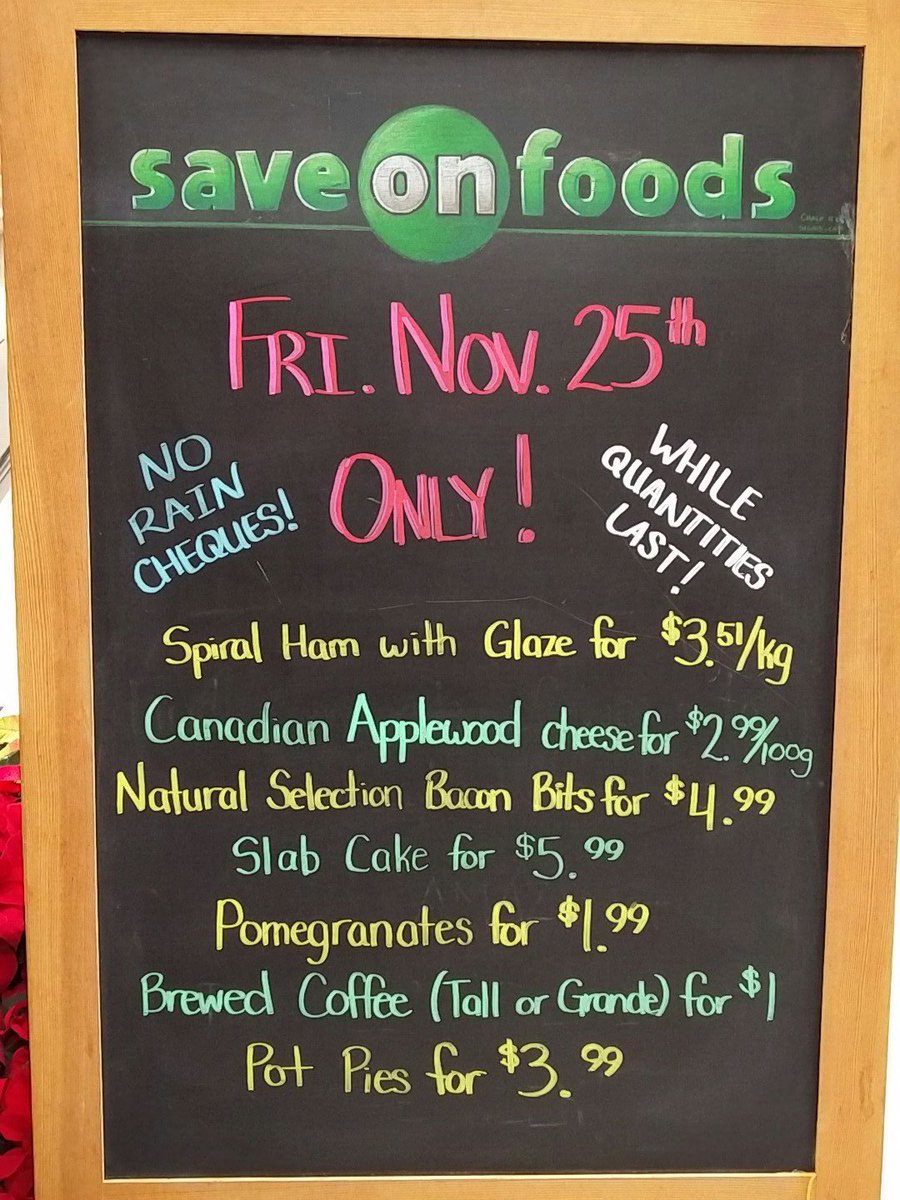 save on foods
FRI. NOV. 25th
ONLY!
NO
RAIN
CHEQUES!
WHILE
QUANTITIES
LAST!
Spiral Ham with Glaze for $3.51/kg
Canadian Applewood cheese for $2.99/100g
Natural Selection Bacon Bits for $4.99
Slab Cake for $5.99
Pomegranates for $1.99
Brewed Coffee (Tall or Grande) for $1
Pot Pies for $3.99